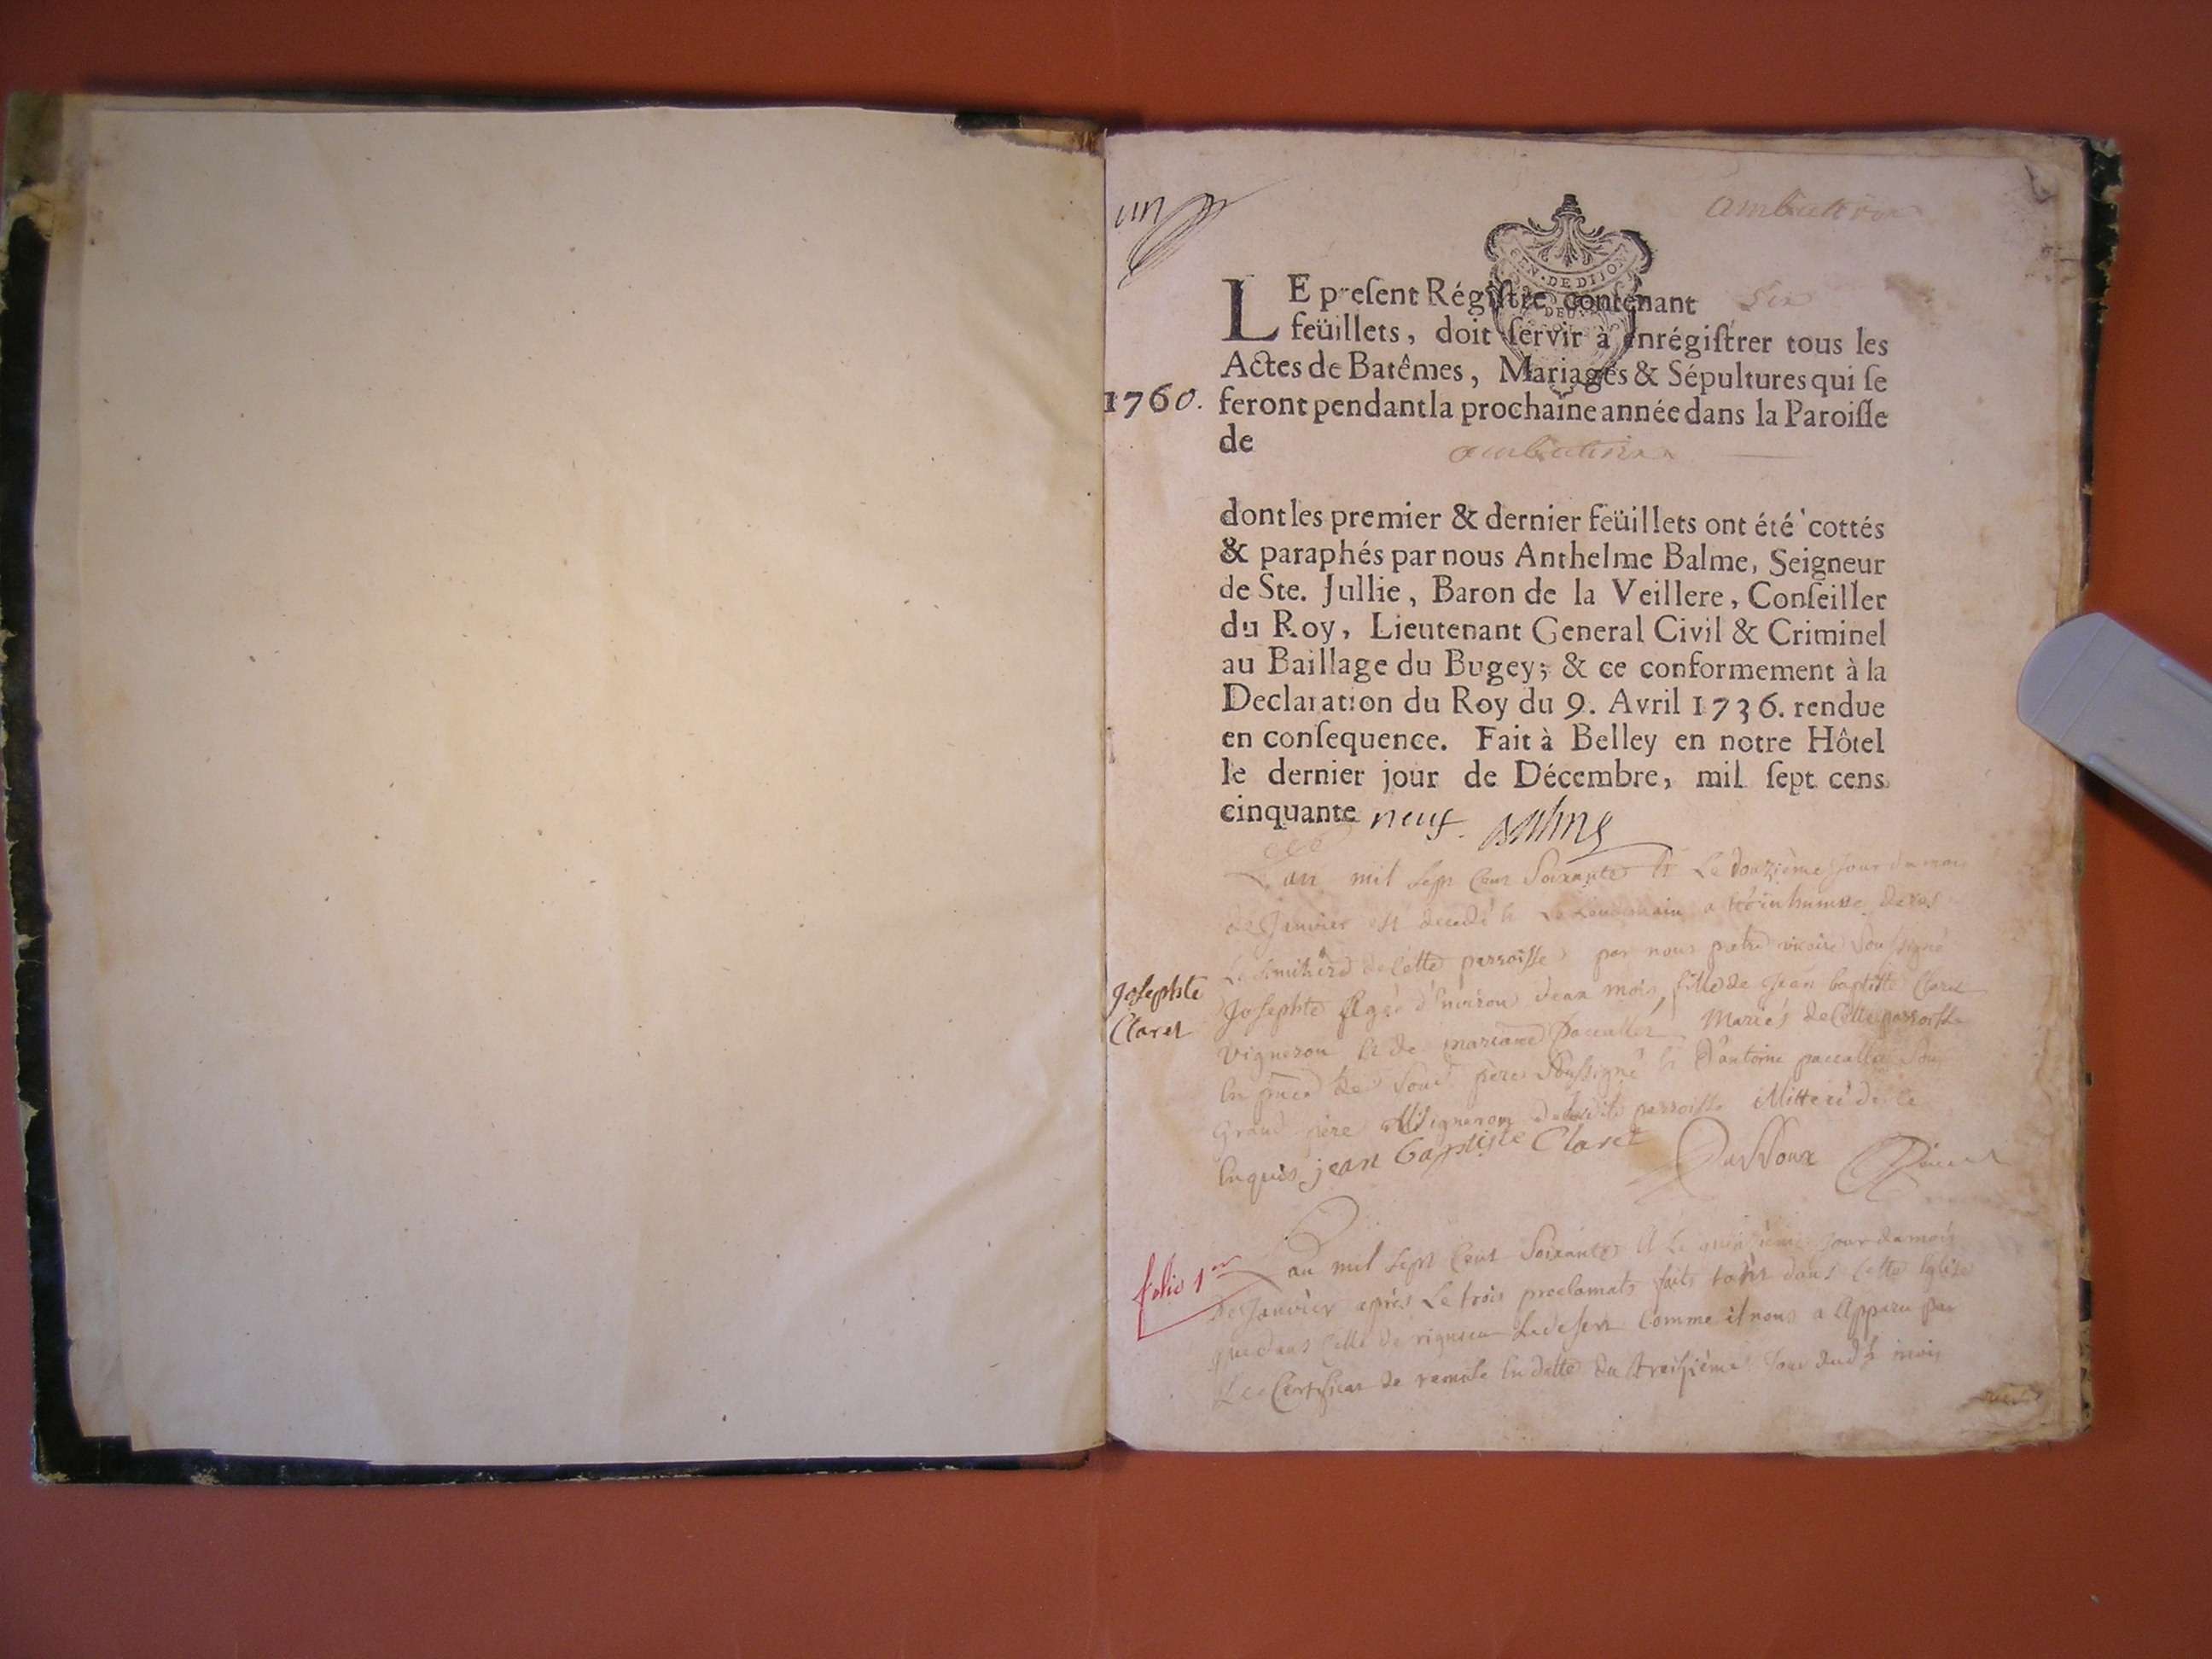 un
GEN. DE DIJON
DEU
LE preſent Régiſtre contenant Six
feüillets, doit ſervir à enrégiſtrer tous les
Actes de Batêmes, Mariages & Sépultures qui ſe
1760. feront pendant la prochaine année dans la Paroiſſe
de
dont les premier & dernier feüillets ont été cottés
& paraphés par nous Anthelme Balme, Seigneur
de Ste. Jullie, Baron de la Veillere, Conſeiller
du Roy, Lieutenant General Civil & Criminel
au Baillage du Bugey; & ce conformement à la
Declaration du Roy du 9. Avril 1736. rendue
en conſequence. Fait à Belley en notre Hôtel
le dernier jour de Décembre, mil ſept cens
cinquante neuf. Balme
L'an mil Sept Cent Soixante et Le douzième Jour du mois
de Janvier est decedé et Le Lendemain a été inhumée dans
Le Cimitière de Cette parroisse par nous prêtre vicaire Soussigné
Josephte
Claret
Josephte Agée d'Environ deux mois, fille de Jean baptiste Claret
Vigneron et de mariane Paccallet Mariés de Cette parroisse
En pnce de Soud. père Soussigné et d'antoine paccallet Son
Grand père Vigneron de ladite parroisse illitteré de ce
Enquis jean Baptiste Claret
folio 1er
L'an mil Sept Cent Soixante et Le quinzième jour du mois
De Janvier après Le trois proclamats faits tant dans Cette Eglise
que dans Celle de Comme il nous a Apparu par
Le Certificat de remise En datte du treizième Jour dud. mois